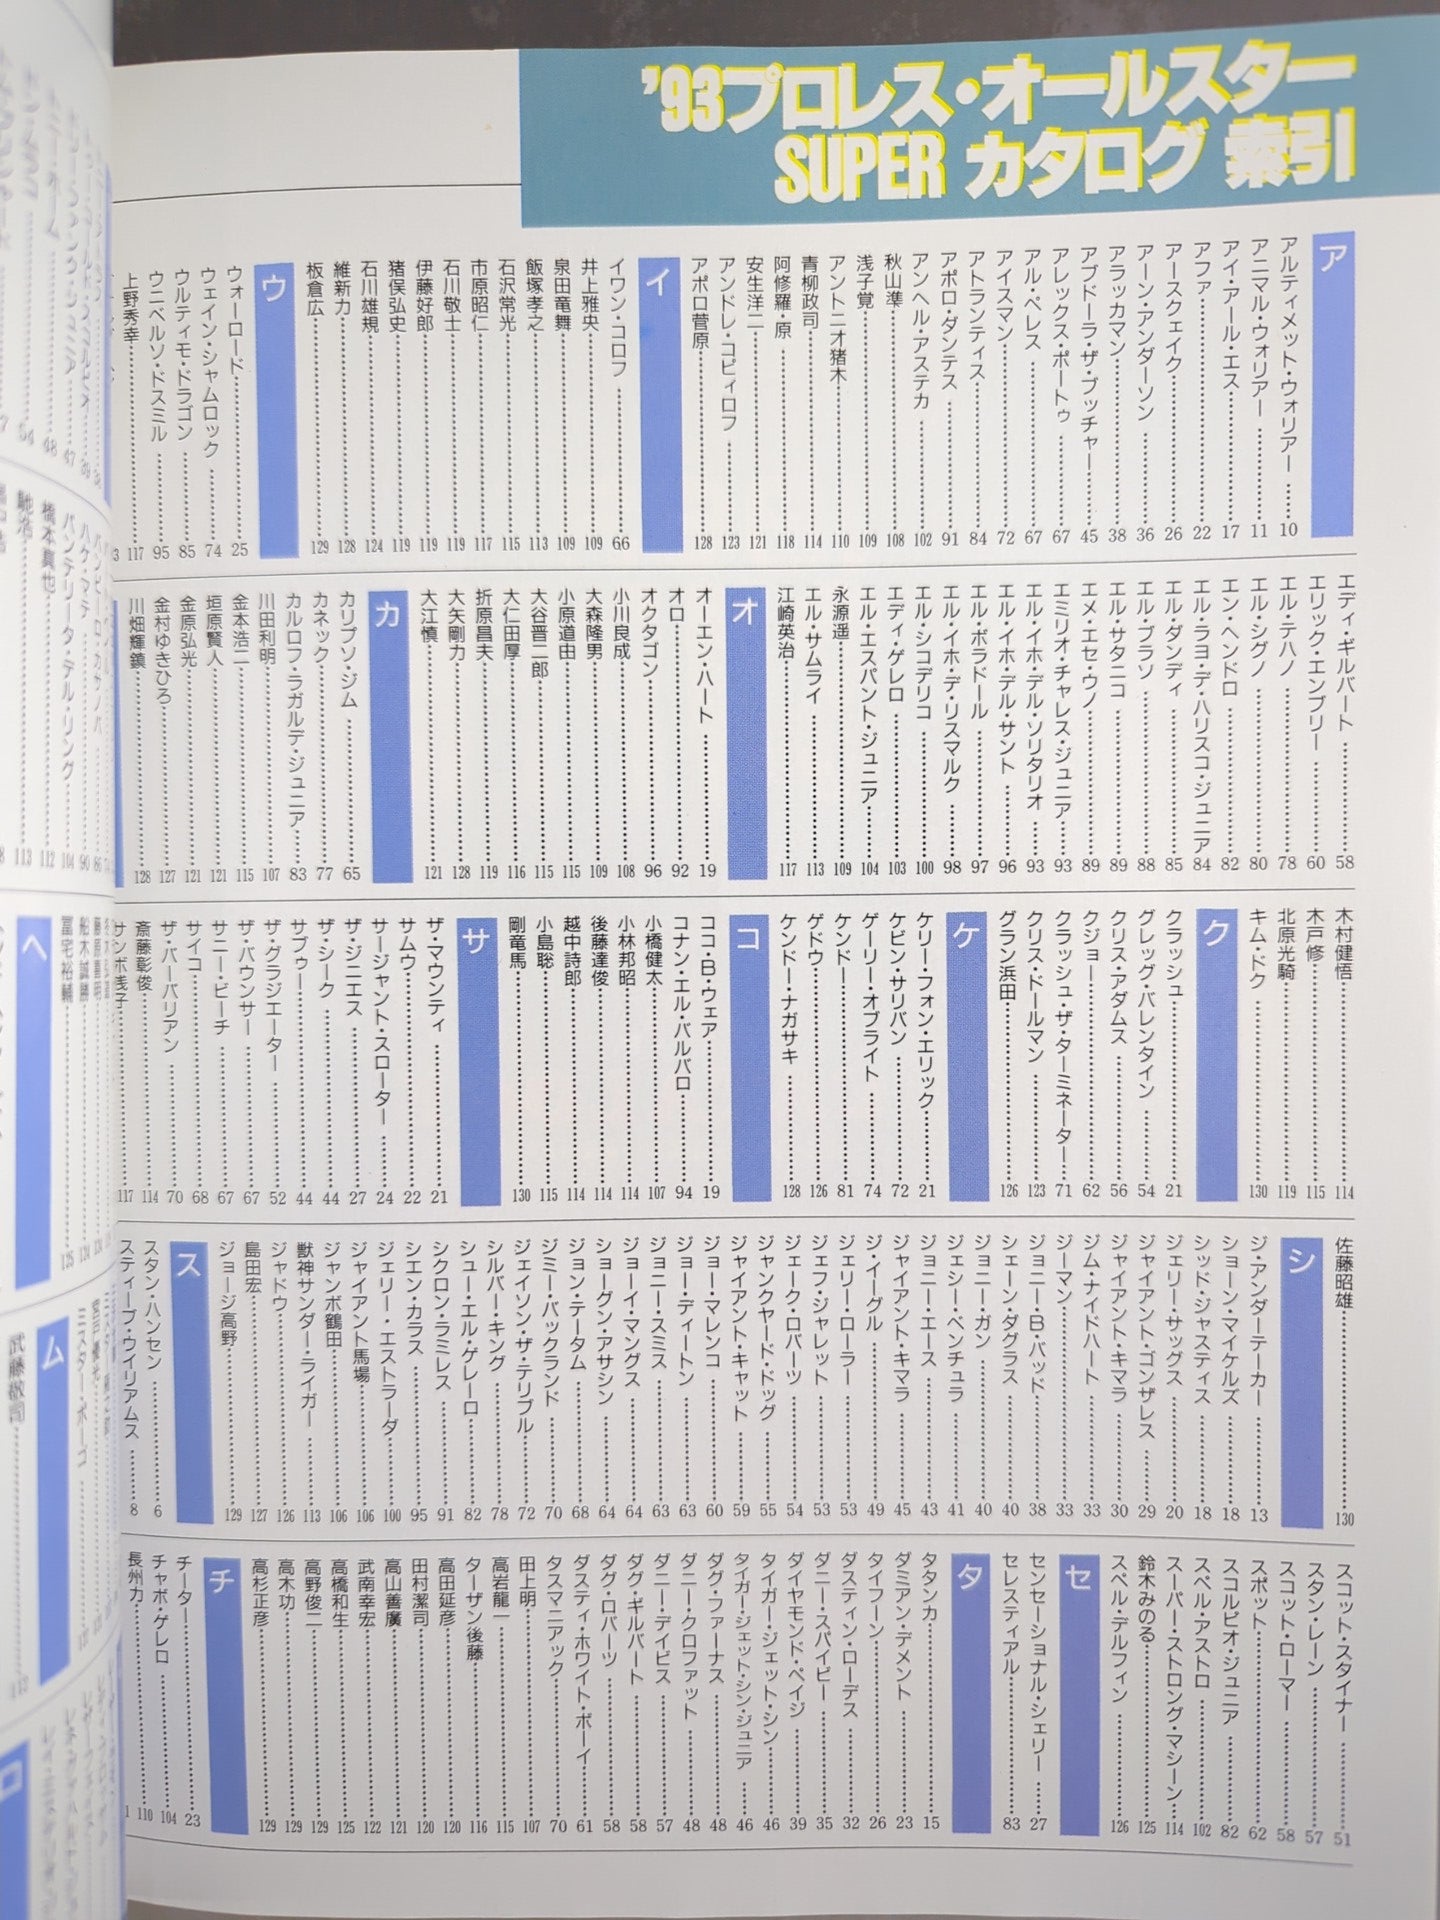 '93プロレス・オールスター
SUPER カタログ 索引
ア
アルティメット・ウォリアー……10
アニマル・ウォリアー……11
アイ・アール・エス……17
アファ……22
アースクェイク……26
アーン・アンダーソン……36
アラッカマン……38
アブドーラ・ザ・ブッチャー……45
アレックス・ポートゥ……67
アル・ペレス……67
アイスマン……72
アトランティス……84
アポロ・ダンテス……91
アンヘル・アステカ……102
秋山準……108
浅子覚……109
アントニオ猪木……110
青柳政司……114
阿修羅・原……118
安生洋二……121
アンドレ・コピィロフ……123
アポロ菅原……128
イ
イワン・コロフ……66
井上雅央……109
泉田竜舞……109
飯塚孝之……113
石沢常光……115
市原昭仁……117
石川敬士……119
伊藤好郎……119
猪俣弘史……119
石川雄規……124
維新力……128
板倉広……129
ウ
ウォーロード……25
ウェイン・シャムロック……74
ウルティモ・ドラゴン……85
ウニベルソ・ドスミル……95
上野秀幸……117
エディ・ギルバート……58
エリック・エンブリー……60
エル・テハノ……78
エル・シグノ……80
エン・ヘンドロ……82
エル・ラヨ・デ・ハリスコ・ジュニア……84
エル・ダンディ……85
エル・ブラソ……88
エル・サタニコ……89
エメ・エセ・ウノ……89
エミリオ・チャレス・ジュニア……93
エル・イホ・デル・ソリタリオ……93
エル・イホ・デル・サント……96
エル・ボラドール……97
エル・イホ・デ・リスマルク……98
エル・シコデリコ……100
エディ・ゲレロ……103
エル・エスパント・ジュニア……104
永源遥……109
エル・サムライ……113
江崎英治……117
オ
オーエン・ハート……19
オロ……92
オクタゴン……96
小川良成……108
大森隆男……109
小原道由……115
大谷晋二郎……115
大仁田厚……116
折原昌夫……119
大矢剛力……128
大江慎……121
カ
カリプソ・ジム……65
カネック……77
カルロフ・ラガルデ・ジュニア……83
川田利明……107
金本浩二……115
垣原賢人……121
金原弘光……121
金村ゆきひろ……127
川畑輝鎮……128
木村健悟……114
木戸修……115
北原光騎……119
キム・ドク……130
ク
クラッシュ……21
グレッグ・バレンタイン……54
クリス・アダムス……56
クジョー……62
クラッシュ・ザ・ターミネーター……71
クリス・ドールマン……123
グラン浜田……126
ケ
ケリー・フォン・エリック……21
ケビン・サリバン……72
ゲーリー・オブライト……74
ケンドー……81
ゲドウ……126
ケンドー・ナガサキ……128
コ
ココ・B・ウェア……19
コナン・エル・バルバロ……94
小橋健太……107
小林邦昭……114
後藤達俊……114
越中詩郎……114
小島聡……115
剛竜馬……130
サ
ザ・マウンティ……21
サムウ……22
サージャント・スローター……24
ザ・ジニエス……27
ザ・シーク……44
サブゥー……44
ザ・グラジエーター……52
ザ・バウンサー……67
サニー・ビーチ……67
サイコ……68
ザ・バーバリアン……70
斎藤彰俊……114
サンボ浅子……117
佐藤昭雄……130
シ
ジ・アンダーテーカー……13
ショーン・マイケルズ……18
シッド・ジャスティス……18
ジェリー・サッグス……20
ジャイアント・ゴンザレス……29
ジャイアント・キマラ……30
ジム・ナイドハート……33
ジーマン……33
ジョニー・B・バッド……38
シェーン・ダグラス……40
ジョニー・ガン……40
ジェシー・ベンチュラ……41
ジョニー・エース……43
ジャイアント・キマラ……45
ジ・イーグル……49
ジェリー・ローラー……53
ジェフ・ジャレット……53
ジェーク・ロバーツ……54
ジャンクヤード・ドッグ……55
ジャイアント・キャット……59
ジョー・マレンコ……60
ジョー・ディートン……63
ジョニー・スミス……63
ジョーイ・マングス……64
ショーグン・アサシン……64
ジョン・テータム……68
ジミー・バックランド……70
ジェイソン・ザ・テリブル……72
シルバー・キング……78
シュー・エル・ゲレーロ……82
シクロン・ラミレス……91
シエン・カラス……95
ジェリー・エストラーダ……100
ジャイアント馬場……106
ジャンボ鶴田……106
獣神サンダー・ライガー……113
ジャドウ……126
島田宏……127
ジョージ高野……129
ス
スタン・ハンセン……6
スティーブ・ウイリアムス……8
スコット・スタイナー……51
スタン・レーン……57
スコット・ローマー……58
スポット……62
スコルピオ・ジュニア……82
スペル・アストロ……102
スーパー・ストロング・マシーン……114
鈴木みのる……125
スペル・デルフィン……126
セ
センセーショナル・シェリー……27
セレスティアル……83
タ
タタンカ……15
ダミアン・デメント……23
タイフーン……26
ダスティン・ローデス……32
ダニー・スパイビー……35
ダイヤモンド・ペイジ……39
タイガー・ジェット・シン……46
タイガー・ジェット・シン・ジュニア……46
ダグ・ファーナス……48
ダニー・クロファット……48
ダニー・デイビス……57
ダグ・ギルバート……58
ダグ・ロバーツ……58
ダスティ・ホワイト・ボーイ……61
タスマニアック……70
田上明……107
高岩龍一……115
ターザン後藤……116
高田延彦……120
田村潔司……120
高山善廣……121
武南幸宏……122
高橋和生……125
高野俊二……129
高木功……129
高杉正彦……129
チ
チーター……23
チャボ・ゲレロ……104
長州力……110
ヘ
ム
橋本真也……112
馳浩……113
バンテリータ・デル・リング……104
船木誠勝
冨宅祐輔……125
ミスター・ポーゴ
武藤敬司